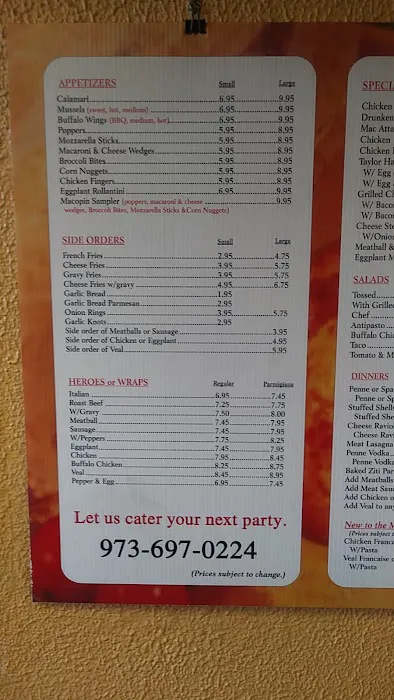 APPETIZERS Small Large
Calamari 6.95 9.95
Mussels (sweet, hot, medium) 6.95 9.95
Buffalo Wings (BBQ, medium, hot) 6.95 9.95
Poppers 5.95 8.95
Mozzarella Sticks 5.95 8.95
Macaroni & Cheese Wedges 5.95 8.95
Broccoli Bites 5.95 8.95
Corn Nuggets 5.95 8.95
Chicken Fingers 5.95 8.95
Eggplant Rollantini 6.95 9.95
Macopin Sampler (poppers, macaroni & cheese 9.95
wedges, Broccoli Bites, Mozzarella Sticks & Corn Nuggets)
SIDE ORDERS Small Large
French Fries 2.95 4.75
Cheese Fries 3.95 5.75
Gravy Fries 3.95 5.75
Cheese Fries w/gravy 4.95 6.75
Garlic Bread 1.95
Garlic Bread Parmesan 2.95
Onion Rings 3.95 5.75
Garlic Knots 2.95
Side order of Meatballs or Sausage 3.95
Side order of Chicken or Eggplant 4.95
Side order of Veal 5.95
HEROES or WRAPS Regular Parmigiana
Italian 6.95 7.45
Roast Beef 7.25 7.75
W/Gravy 7.50 8.00
Meatball 7.45 7.95
Sausage 7.45 7.95
W/Peppers 7.75 8.25
Eggplant 7.45 7.95
Chicken 7.95 8.45
Buffalo Chicken 8.25 8.75
Veal 8.45 8.95
Pepper & Egg 6.95 7.45
Let us cater your next party.
973-697-0224
(Prices subject to change.)
SPECI
Chicken
Drunken
Mac Atta
Chicken
Chicken
Taylor Ha
W/ Egg
W/ Egg
Grilled C
W/ Baco
W/ Baco
Cheese Ste
W/Onio
Meatball &
Eggplant M
SALADS
Tossed
With Grille
Chef
Antipasto
Buffalo Chi
Taco
Tomato & M
DINNERS
Penne or Spa
Penne or Sp
Stuffed Shells
Stuffed She
Cheese Ravio
Cheese Ravi
Meat Lasagna
Penne Vodka
Penne Vodk
Baked Ziti Par
Add Meatballs
Add Meat Sau
Add Chicken o
Add Veal to an
New to the M
(Prices subject t
Chicken Franc
W/Pasta
Veal Francaise
W/Pasta